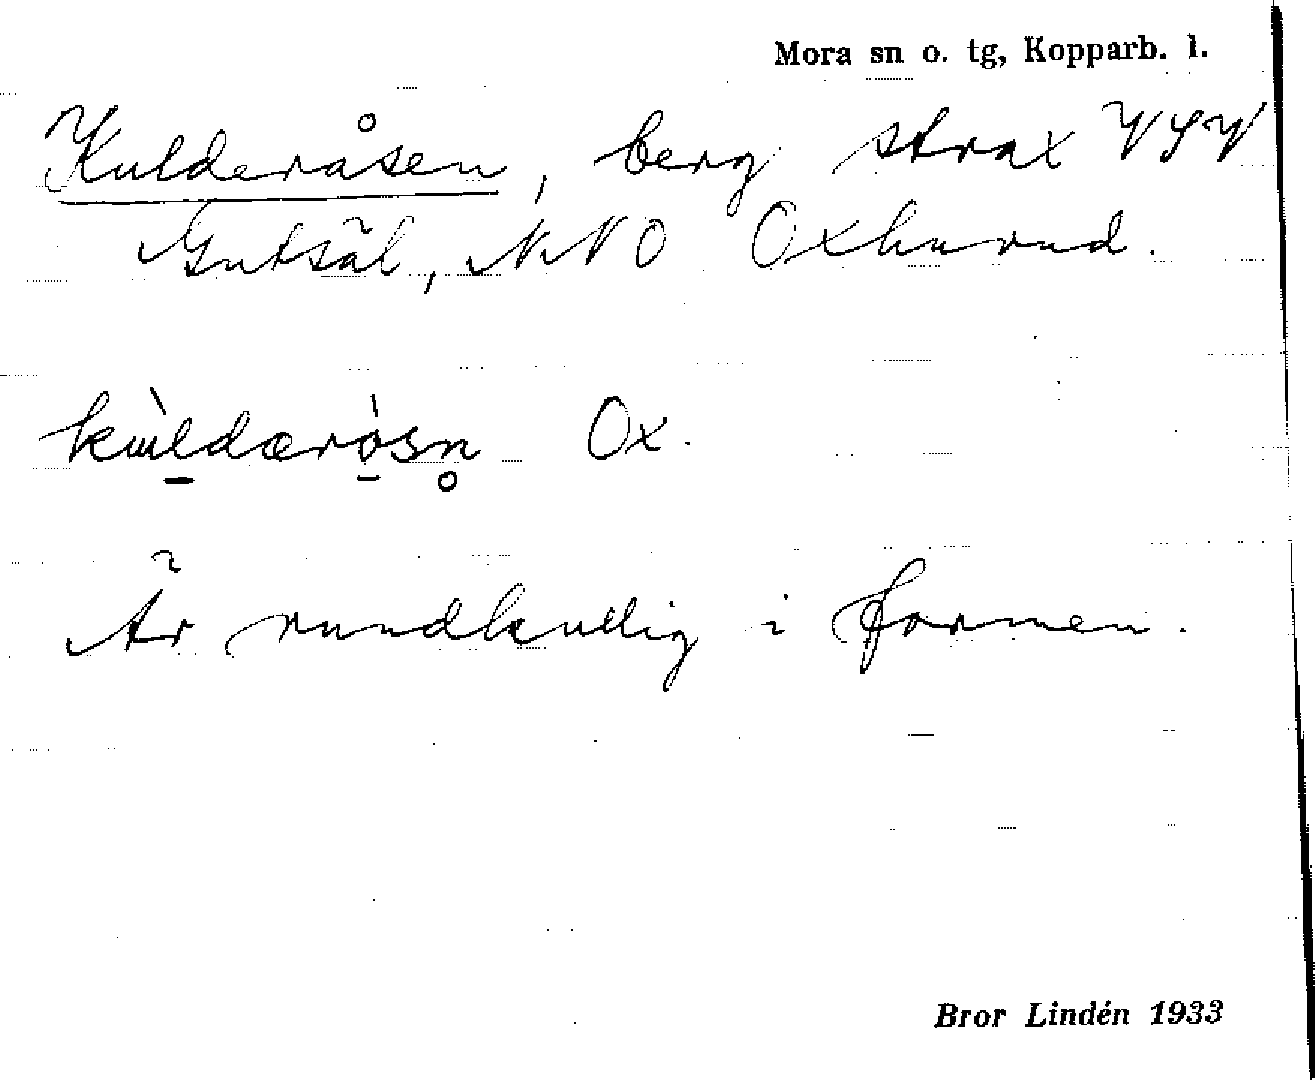 Mora sn o. tg, Kopparb. l.
Kulderåsen, berg strax VSV
Gutsäl, NNO Oxhuvud.
kùldæròsn̥ Ox.
Är rundkullig i formen.
Bror Lindén 1933